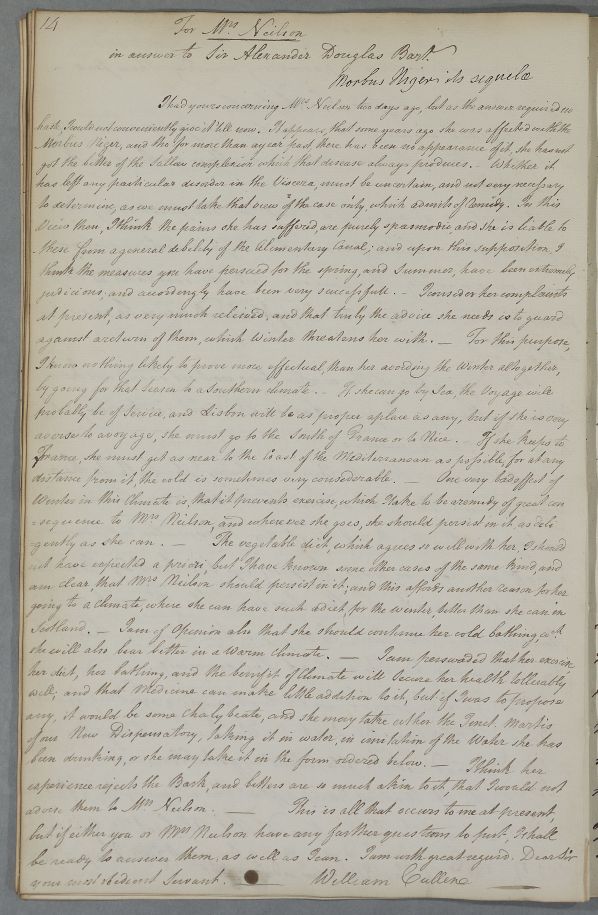 14
For Mrs Neilson
in answer to Sir Alexander Douglas Bart.
Morbus Niger its sequelæ
I had yours concerning Mrs Neilson two days ago, but as the answer required no
hast, I could not conveniently give it till now. It appears, that some years ago she was affected with the
Morbus Niger, and tho' for more than a year past, there has been no appearance of it, she has not
got the better of the Sallow complexion which that disease always produces. - Whether it
has left any particular disorder in the Viscera, must be uncertain, and not very necessary
to determine, as we must take that view of the case only, which admits of Remidy. In this
View then, I think the pains she has suffered, are purely spasmodic, and she is liable to
these from a general debility of the Alimentary Canal; and upon this supposition, I
think the measures you have persued for the spring, and Summer, have been extremely
judicious, and accordingly have been very successfull. - I consider her complaints
at present, as very much relieved, and that truly the advice she needs is to guard
against a return of them, which Winter threatens her with. - For this purpose,
I know nothing likely to prove more effectual, than her avoiding the Winter altogether,
by going for that Season to a Southern climate. - If she can go by Sea, the Voyage will
probably be of Service, and Lisbon will be as proper a place as any, but if she is very
averse to a voyage, she must go to the South of France or to Nice. - If she keeps to
France, she must get as near to the Coast of the Mediterranean as possible, for at any
distance from it, the cold is sometimes very considerable. - One very bad effect of
Winter in this Climate is that it prevents exercise, which I take to be a remidy of great con
=sequence to Mrs Neilson, and where ever she goes, she should persist in it, as deli
=gently as she can. - The vegetable diet, which agrees so well with her, I should
not have expected a priori, but I have known some other cases of the same kind, and
am clear, that Mrs Neilson should persist in it; and this affords another reason for her
going to a climate, where she can have such a diet, for the winter, better than she can in
Scotland. - I am of Opinion also that she should continue her cold bathing, wch
she will also bear better in a warm climate. - I am perswaded that her exercise
her diet, her bathing, and the benefit of Climate will Secure her health tollerably
well; and that Medicine can make little addition to it, but if I was to propose
any, it would be some Chalybeate, and she may take either the Tinct. Martis
of our New Dispensatory, taking it in water, in imitation of the Water she has
been drinking, or she may take it in the form ordered below. - I think her
experience rejects the Bark, and bitters are so much akin to it, that I would not
advise them to Mrs Neilson. - This is all that occurs to me at present,
but if either you or Mrs Neilson have any farther questions to put, I shall
be ready to answer them, as well as I can. I am with great regard. Dear Sir
your most obedient Servant. William Cullen